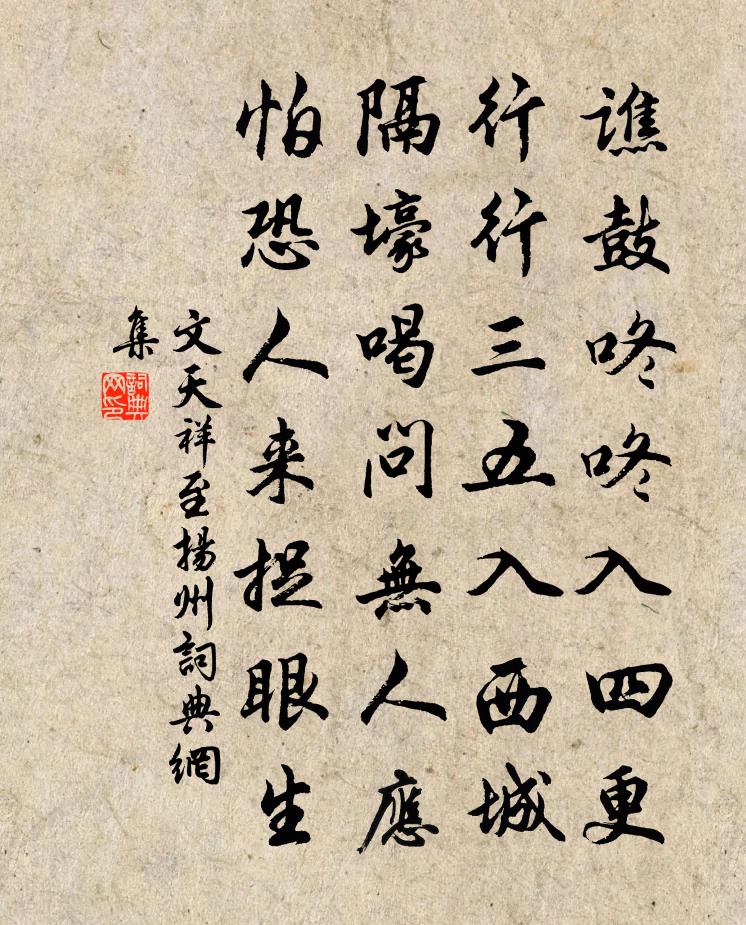 譙鼓咚咚入四更
行行三五入西城
隔壕喝問無人應
怕恐人来捉眼生
文天祥至揚州詞典網
集
詞典网印